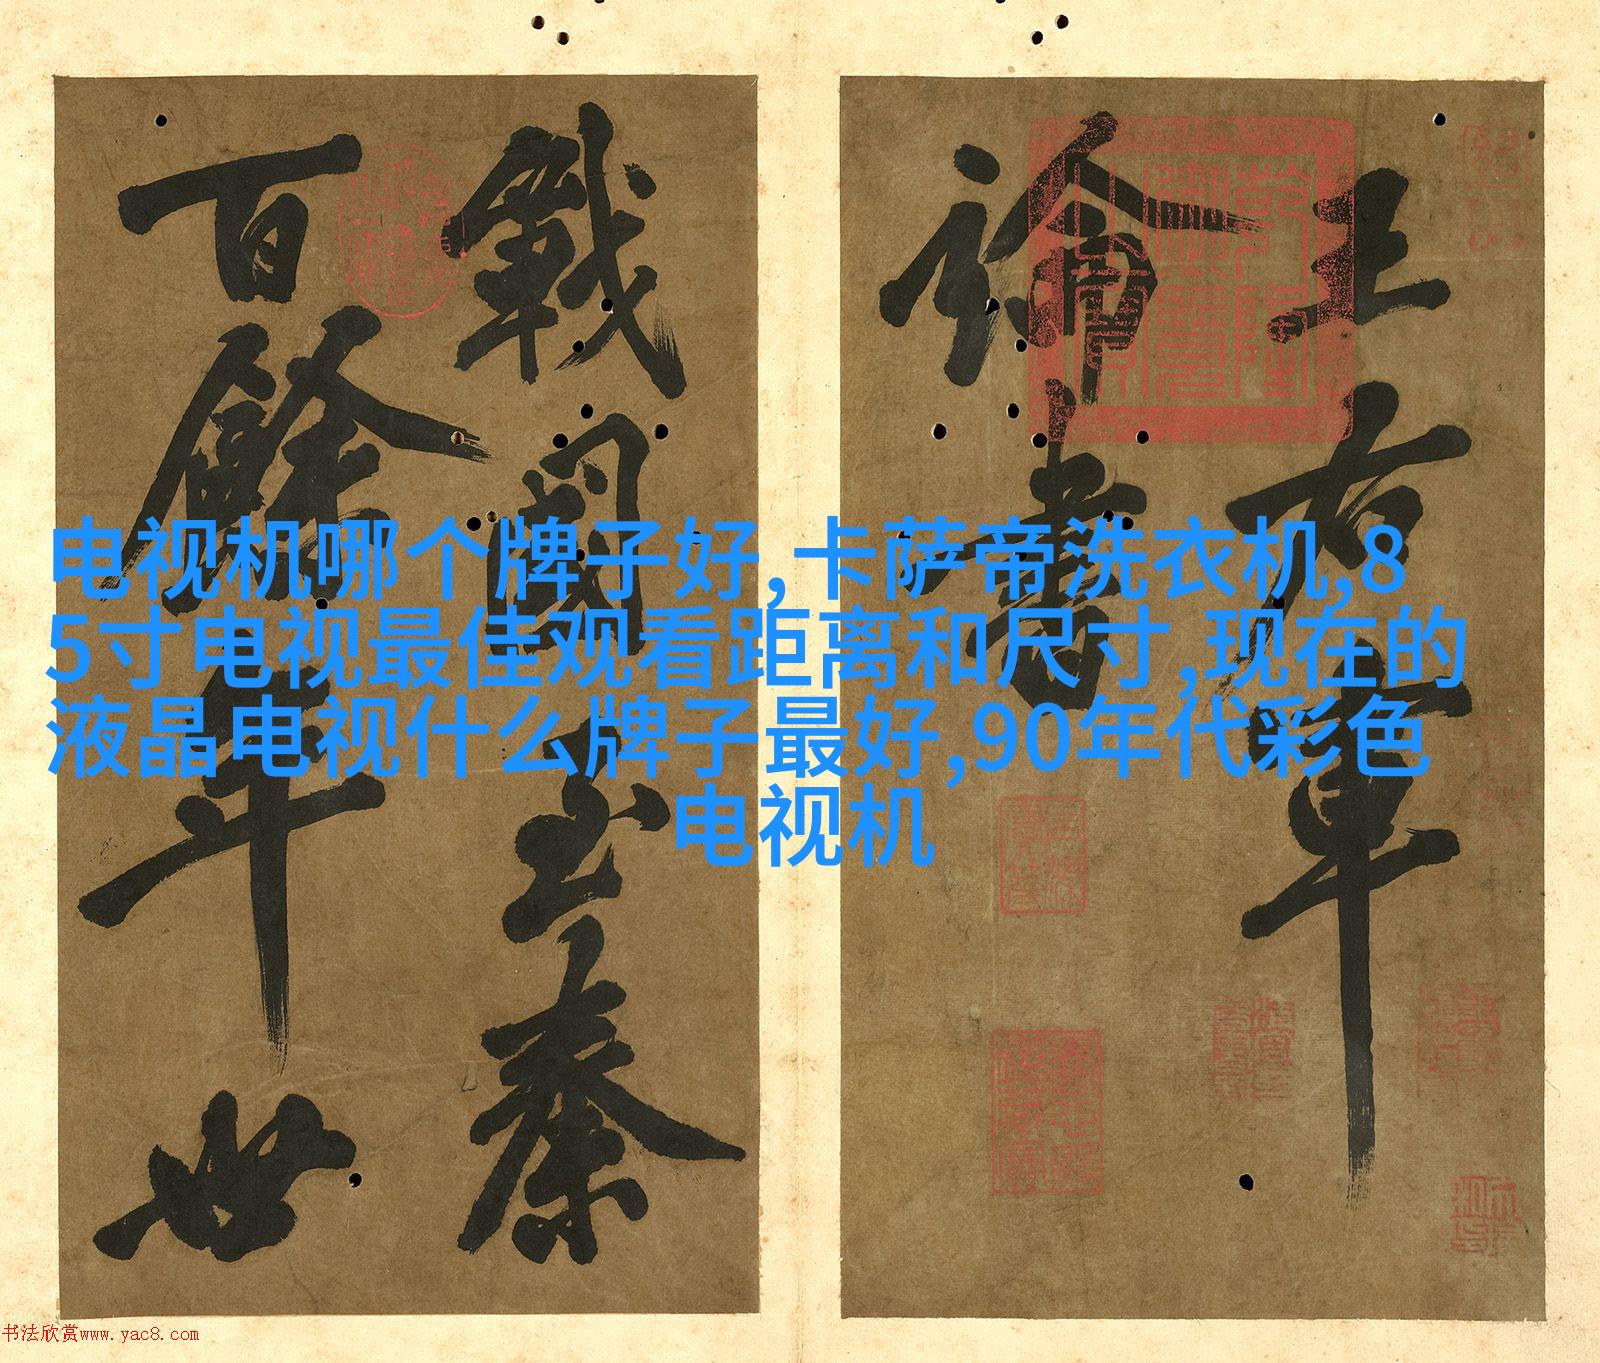 王右軍
論書
戰國至秦
百餘年世
电视机哪个牌子好,卡萨帝洗衣机,8
5寸电视最佳观看距离和尺寸,现在的
液晶电视什么牌子最好,90年代彩色
电视机
书法欣赏www.yac8.com